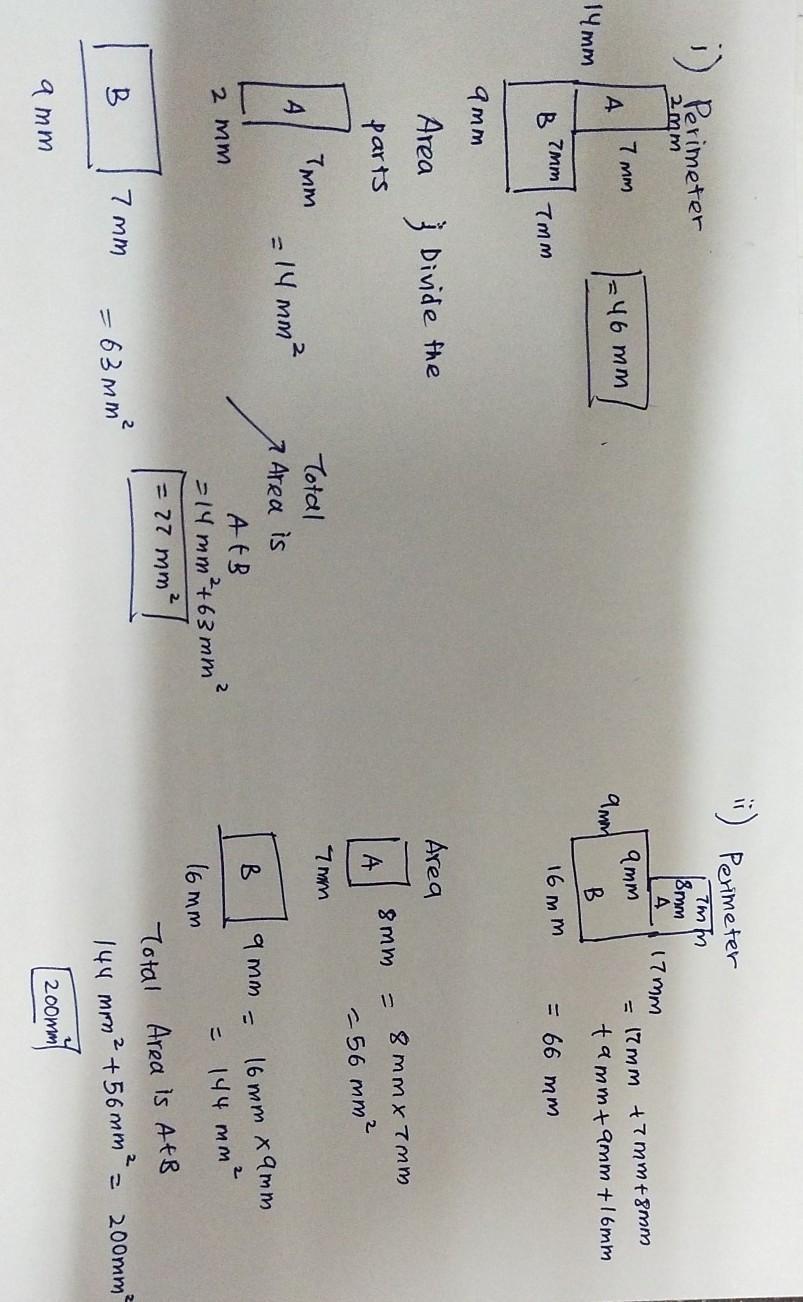 i) Perimeter
2mm
14mm
A
7mm
7mm
B
7mm
9mm
= 46 mm
Area } Divide the
parts
A
7mm
= 14 mm²
2 mm
B
7 mm
= 63 mm²
9 mm
Total
Area is
A+B
= 14 mm² + 63 mm²
= 77 mm²
ii) Perimeter
7mm
8mm
A
17mm
9mm
9mm
B
16mm
= 17mm + 7mm + 8mm
+ 9mm + 9mm + 16mm
= 66 mm
Area
A
8mm = 8mm x 7mm
7mm
= 56 mm²
B
9mm = 16mm x 9mm
16mm
= 144 mm²
Total Area is A+B
144 mm² + 56mm² = 200mm²
200mm²